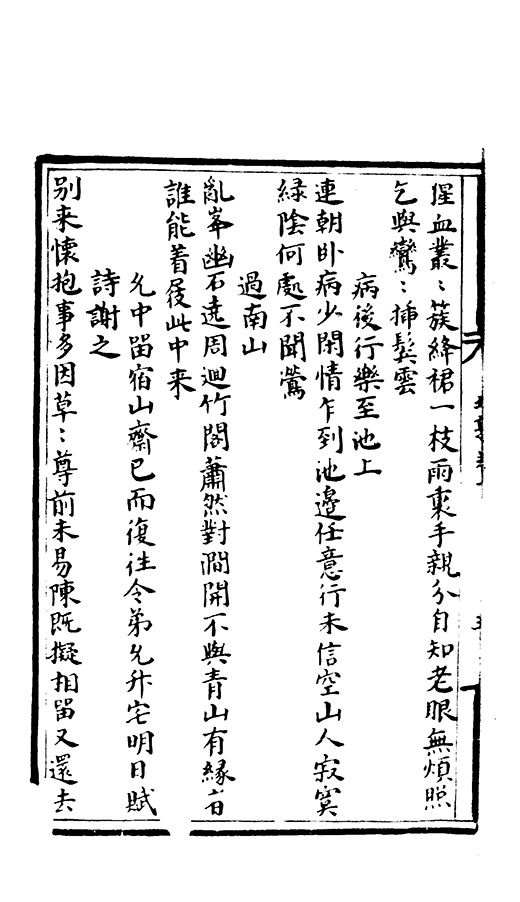 猩血叢〻簇絳裙一枝雨裏手親分自知老眼無煩照
乞與鸞〻揷鬓雲
病後行樂至池上
連朝卧病少閑情乍到池邉任意行未信空山人寂寞
緑陰何處不聞鶯
過南山
亂峯幽石遶周迴竹閣蕭然對澗開不與青山有緣者
誰能着屐此中来
允中畱宿山齋已而復往令弟允升宅明日賦
詩謝之
别来懷抱事多因草〻尊前未易陳既擬相畱又還去